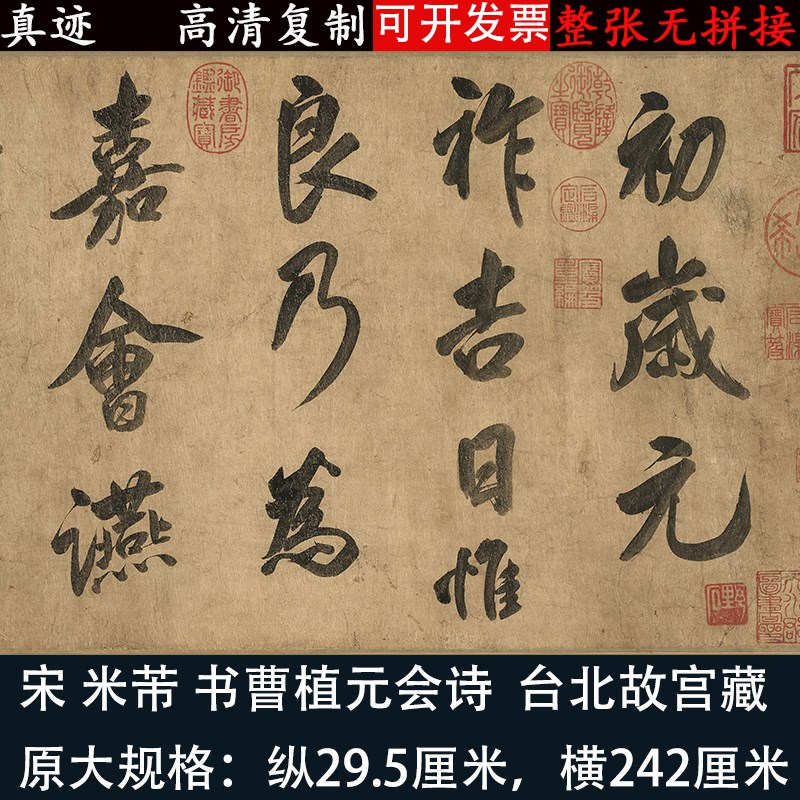 真迹 高清复制 可开发票 整张无拼接
初歲元
祚吉日惟
良乃為
嘉會讌
御書房鑑藏寶
宋 米芾 书曹植元会诗 台北故宫藏
原大规格：纵29.5厘米，横242厘米